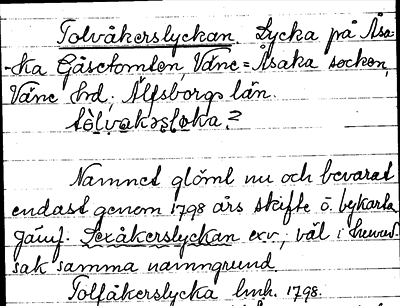 Tolvåkerslyckan. Lycka på Åsa-
-ka Gåsetomten,Väne=Åsaka socken,
Väne hrd. Älfsborgs län.
Namnet glömt nu och bevarat
endast genom 1798 års skifte ö. bykarta
jämf. Sexåkerslyckan ex.; väl i huvud-
sak samma namngrund.
Tolfåkerslycka lmh. 1798.